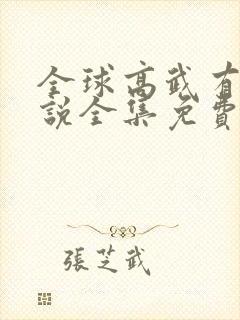 全球高武有
說全集免費
張芝武